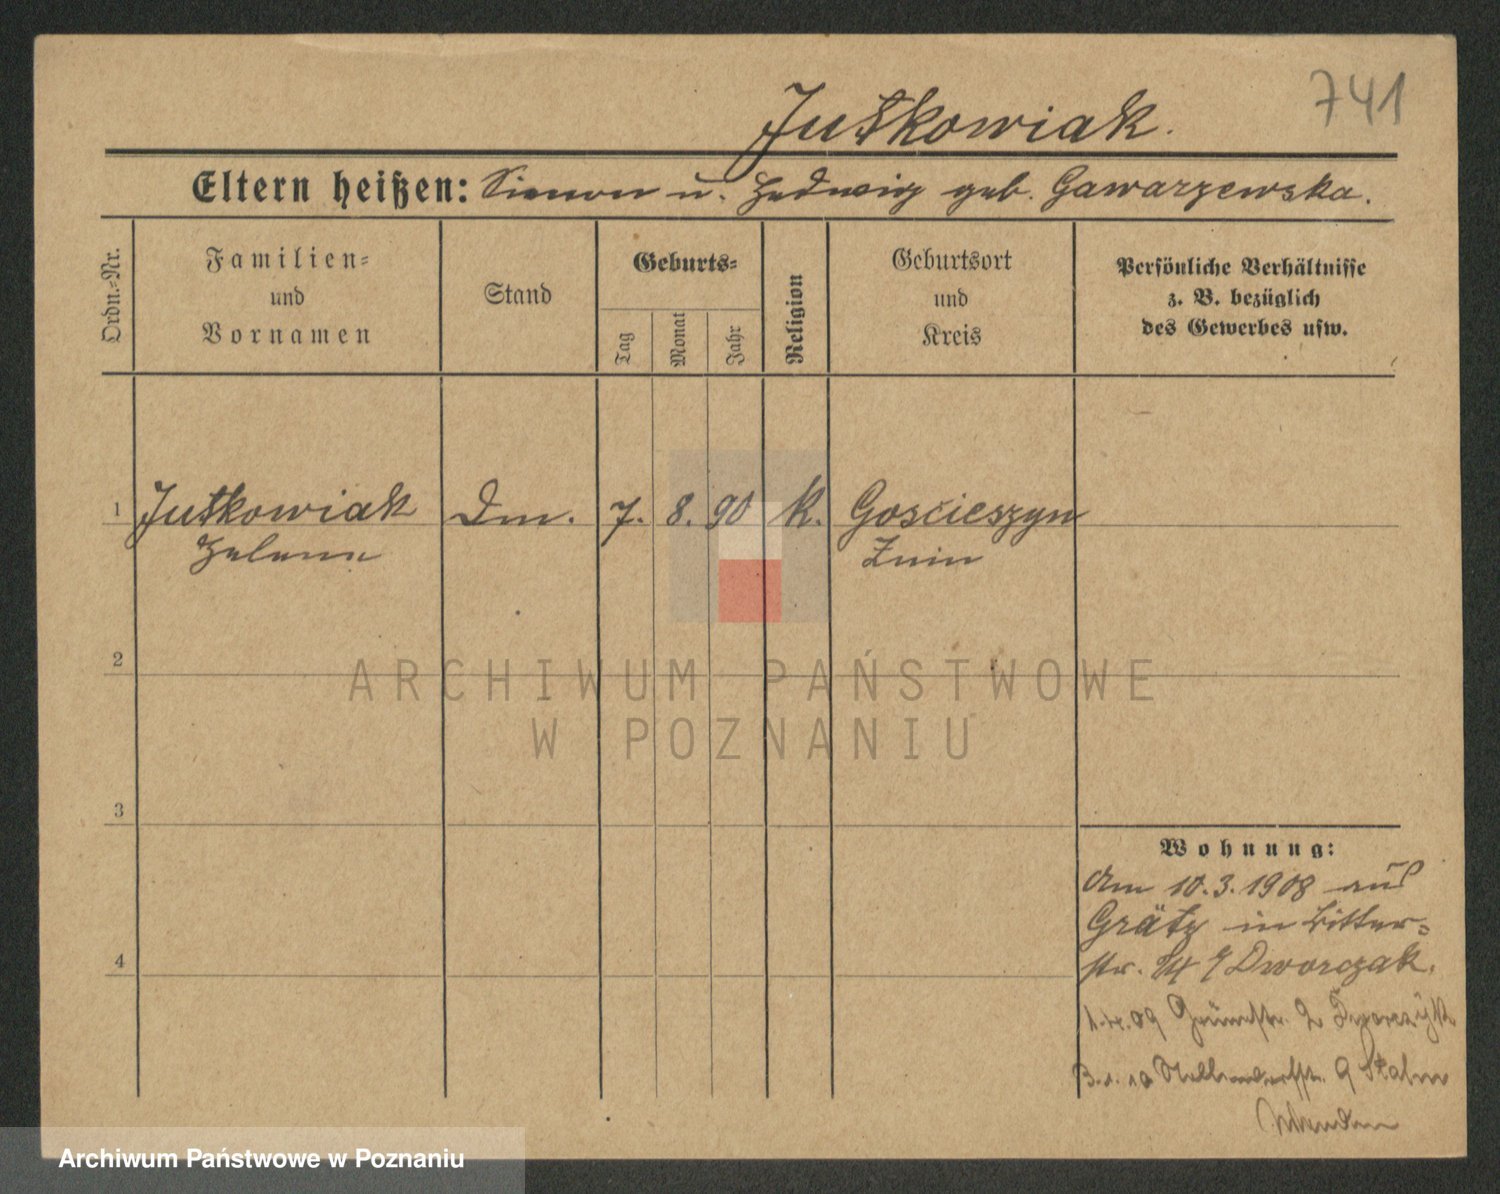 741
Jutkowiak.
Eltern heißen: Simon u. Hedwig geb. Gawarzewska.
Ordn.-Nr.
Familien-
und
Vornamen
Stand
Geburts-
Tag
Monat
Jahr
Religion
Geburtsort
und
Kreis
Persönliche Verhältnisse
z. B. bezüglich
des Gewerbes usw.
1 Jutkowiak Dm. 7. 8. 90 K. Goscieszyn
Helene Znin
2
3
4
Wohnung:
Am 10.3.1908 aus
Grätz in Ritter-
str. Dworczak.
1.4.09 Grünstr. 2 Dworczyk
9
ARCHIWUM PAŃSTWOWE
W POZNANIU
Archiwum Państwowe w Poznaniu